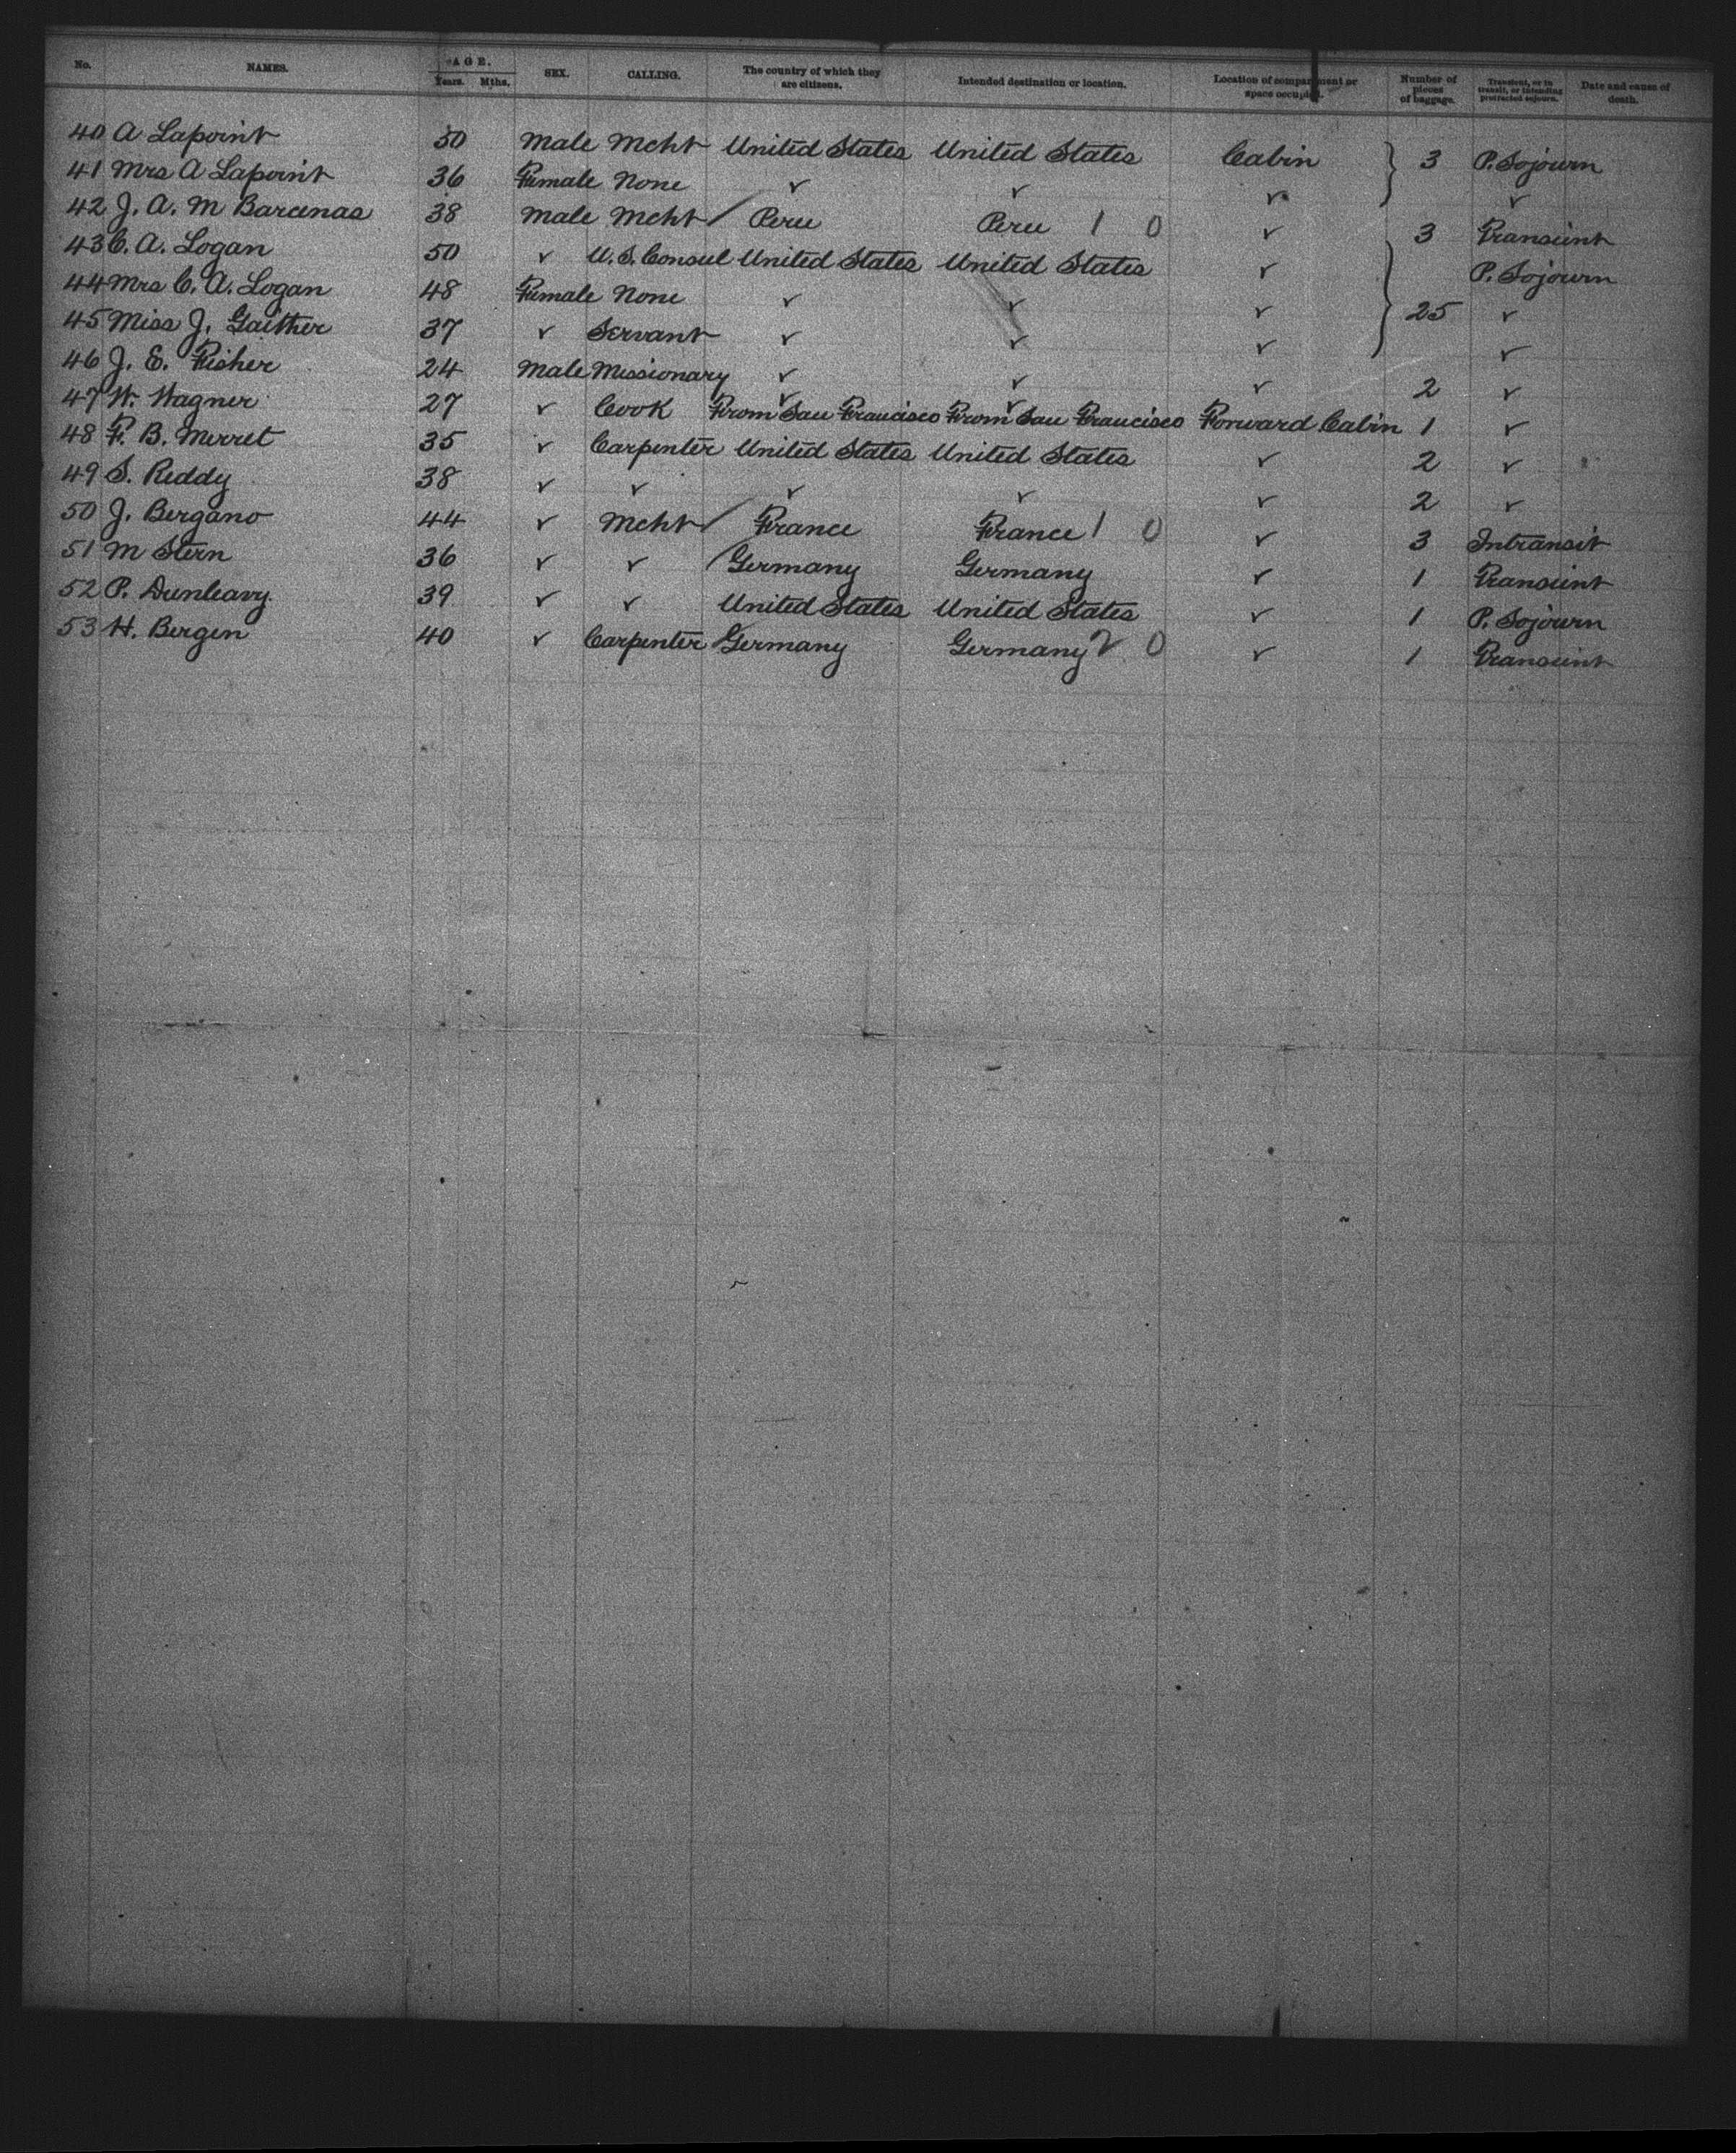 No. NAMES. AGE. Years. Mths. SEX. CALLING. The country of which they are citizens. Intended destination or location. Location of compartment or space occupied. Number of pieces of baggage. Transient, or in transit, or intending protracted sojourn. Date and cause of death.
40 A Lapoint 50 Male Mcht United States United States Cabin } 3 P. Sojourn
41 Mrs A Lapoint 36 Female None ✓ ✓ ✓ ✓
42 J. A. M Barcenas 38 Male Mcht / Peru Peru 1 0 ✓ 3 Transient
43 C. A. Logan 50 ✓ U.S. Consul United States United States ✓ P. Sojourn
44 Mrs C. A. Logan 48 Female None ✓ ✓ ✓ } 25 ✓
45 Miss J. Gaither 37 ✓ Servant ✓ ✓ ✓ ✓
46 J. E. Fisher 24 Male Missionary ✓ ✓ ✓ 2 ✓
47 W. Wagner 27 ✓ Cook ✓ From San Francisco ✓ From San Francisco Forward Cabin 1 ✓
48 F. B. Merret 35 ✓ Carpenter United States United States ✓ 2 ✓
49 S. Reddy 38 ✓ ✓ ✓ ✓ ✓ 2 ✓
50 J. Bergano 44 ✓ Mcht / France France 1 0 ✓ 3 Intransit
51 M Stern 36 ✓ ✓ / Germany Germany ✓ 1 Transient
52 P. Dunleavy 39 ✓ ✓ United States United States ✓ 1 P. Sojourn
53 H. Bergen 40 ✓ Carpenter / Germany Germany 2 0 ✓ 1 Transient